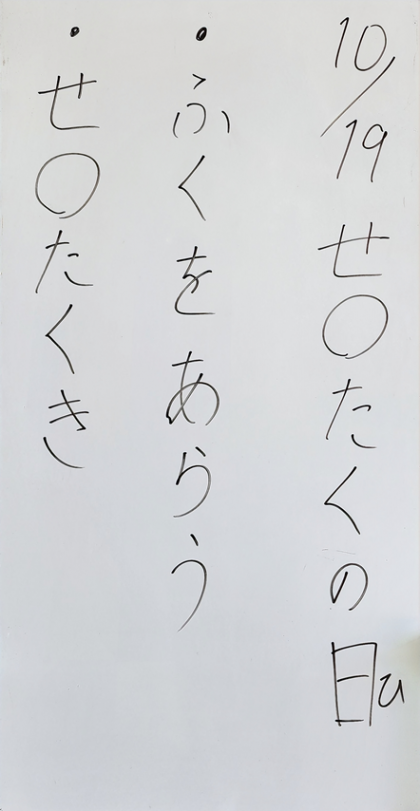 10/19せ〇たくの日ひ
・ふくをあらう
・せ〇たくき